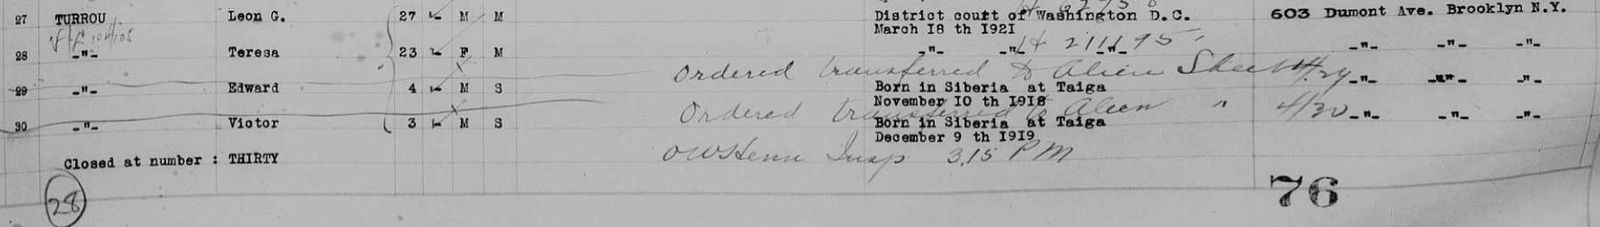 27 TURROU Leon G. 27 M M District court of Washington D.C. 603 Dumont Ave. Brooklyn N.Y.
March 18 th 1921
28 -"- Teresa 23 F M -"- -"- -"- -"- -"- -"-
Ordered transferred to Alien Sheet 4/29
29 -"- Edward 4 M S Born in Siberia at Taiga -"- -"- -"-
November 10 th 1918
Ordered transferred to Alien " 4/30
30 -"- Victor 3 M S Born in Siberia at Taiga -"- -"- -"-
December 9 th 1919
Closed at number : THIRTY Insp 3.15 PM
28 76